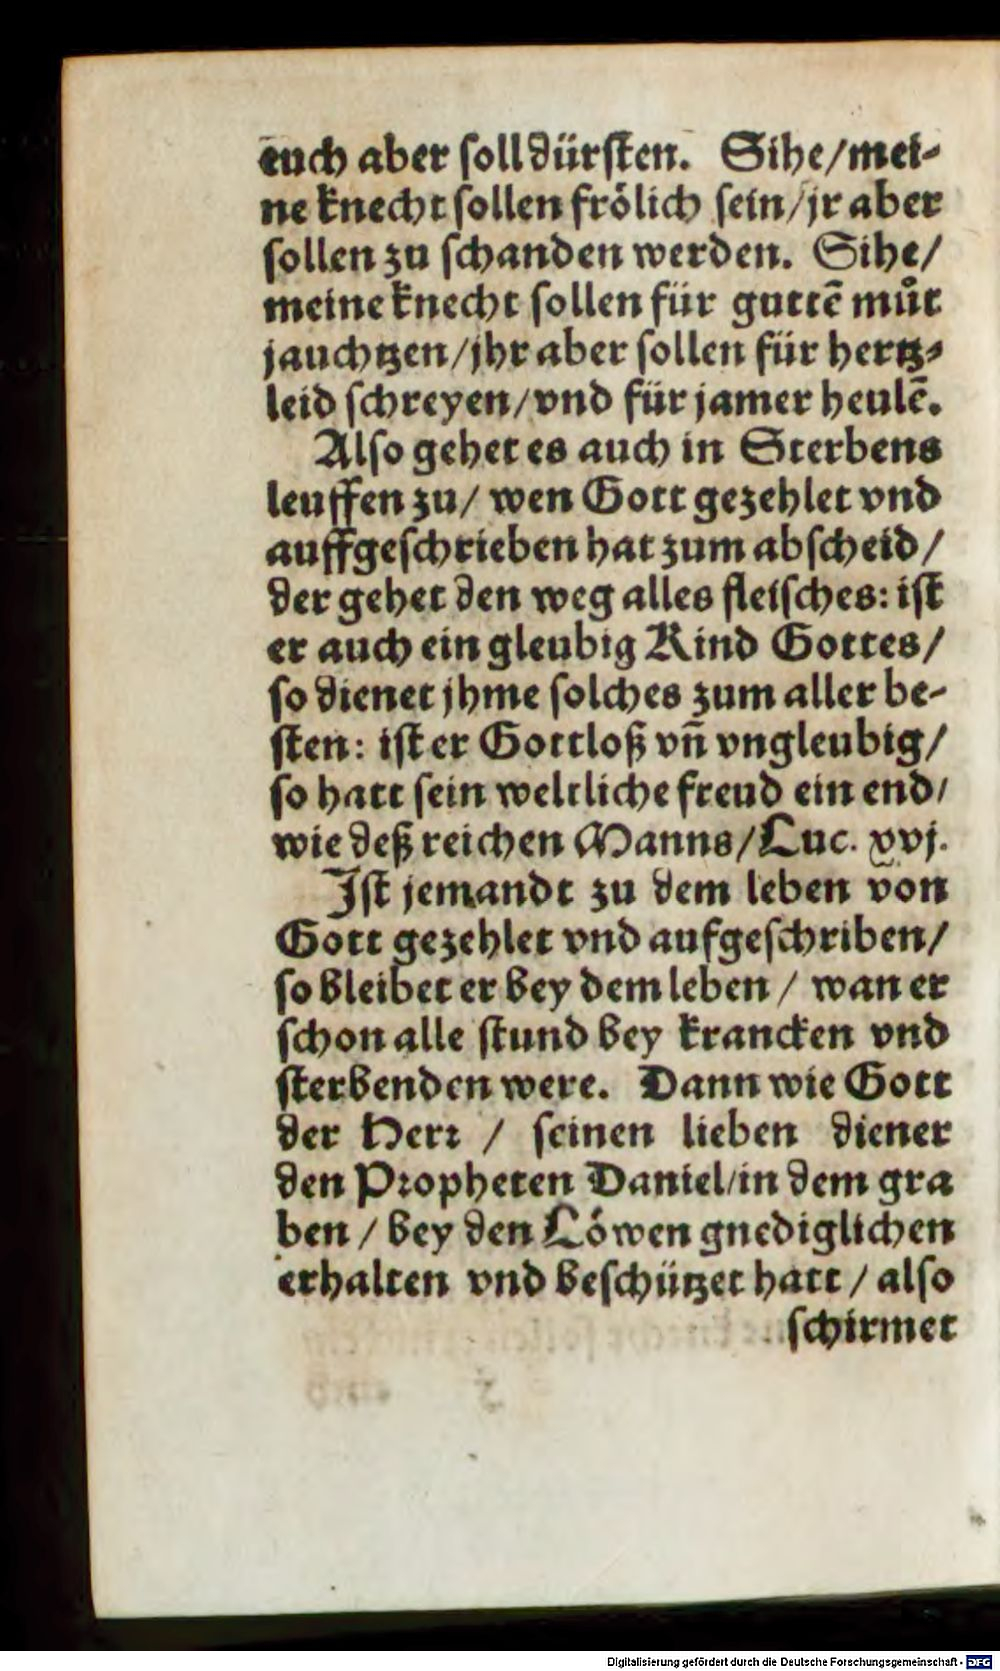 euch aber ſoll dürſten. Sihe/mei-
ne knecht ſollen frölich ſein/jr aber
ſollen zu ſchanden werden. Sihe/
meine knecht ſollen für guttē můt
jauchtzen/jhr aber ſollen für hertz-
leid ſchreyen/vnd für jamer heulē.
Alſo gehet es auch in Sterbens
leuffen zu/ wen Gott gezehlet vnd
auffgeſchrieben hat zum abſcheid/
der gehet den weg alles fleiſches: iſt
er auch ein gleubig Kind Gottes/
ſo dienet jhme ſolches zum aller be-
ſten: iſt er Gottloß vñ vngleubig/
ſo hatt ſein weltliche freud ein end/
wie deß reichen Manns/Luc. xvj.
Iſt jemandt zu dem leben von
Gott gezehlet vnd aufgeſchriben/
ſo bleibet er bey dem leben / wan er
ſchon alle ſtund bey krancken vnd
ſterbenden were. Dann wie Gott
der Herꝛ / ſeinen lieben diener
den Pꝛopheten Daniel/in dem gra
ben / bey den Löwen gnediglichen
erhalten vnd beſchützet hatt / alſo
ſchirmet
Digitalisierung gefördert durch die Deutsche Forschungsgemeinschaft - DFG